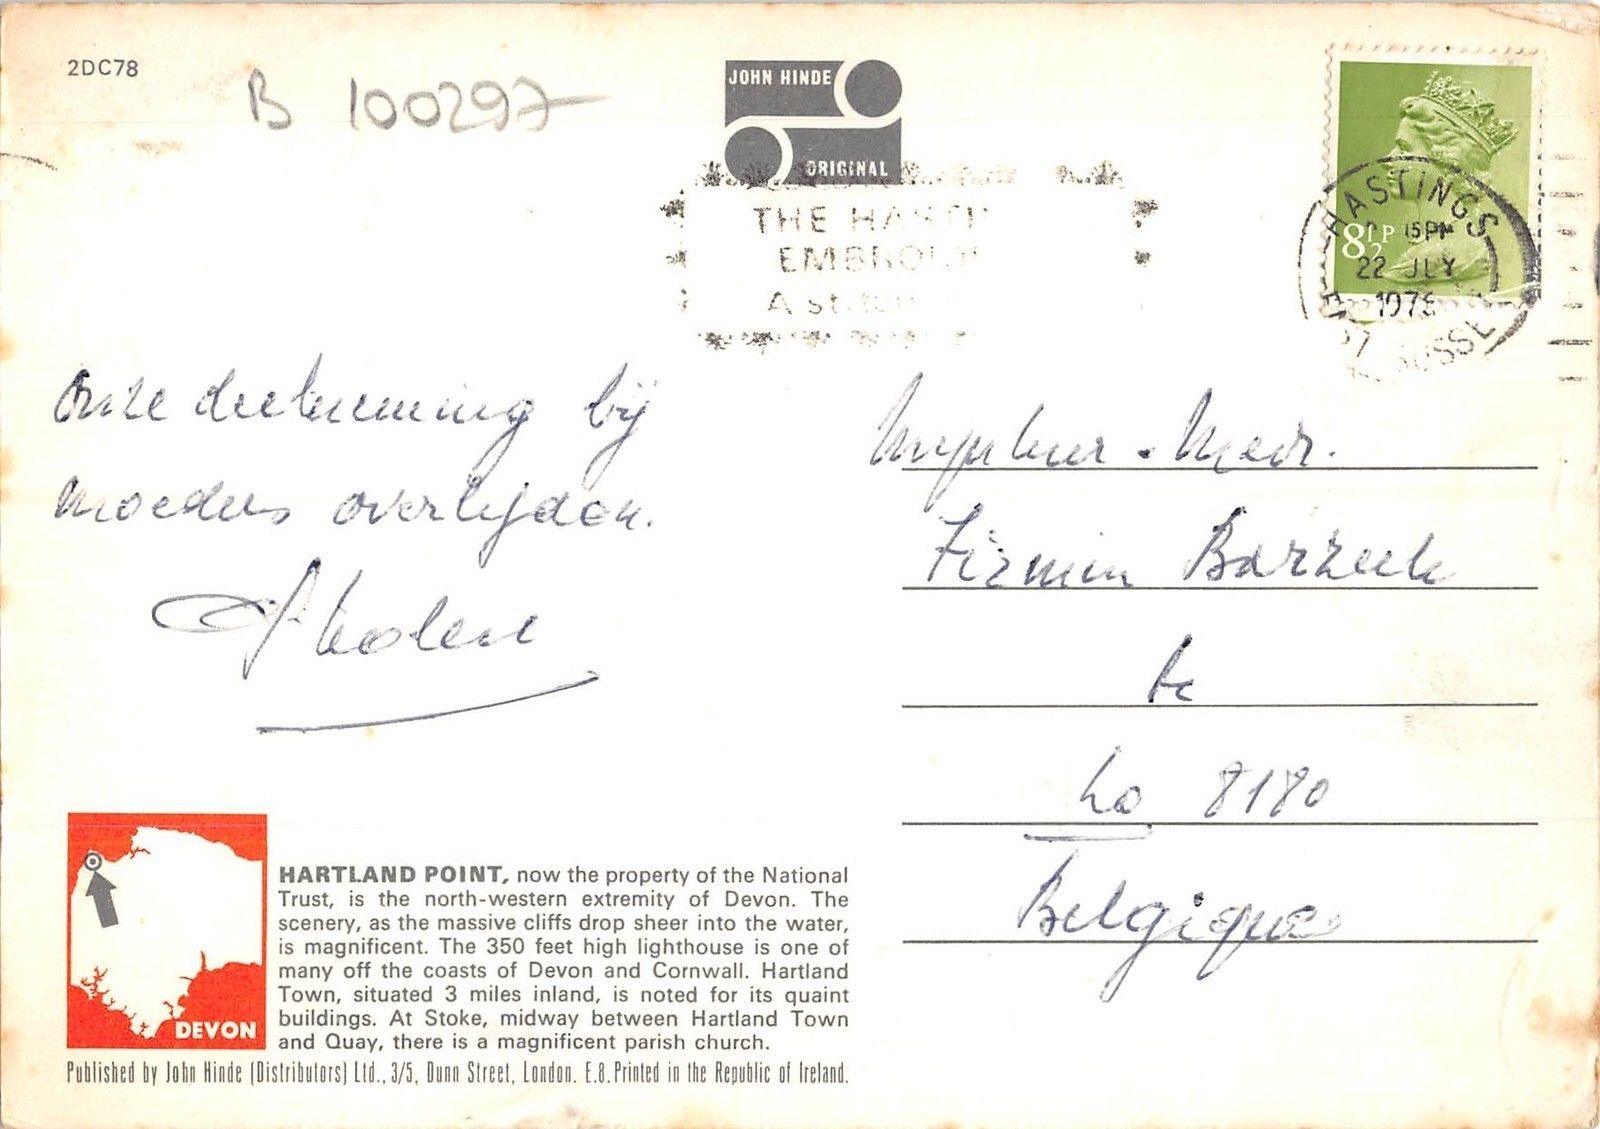 2DC78
B 100297
JOHN HINDE
ORIGINAL
THE
A
HASTINGS
15 PM
22 JLY
8½P
Onze deelneming bij
Moeders overlijden.
Mijnheer. Mevr.
Firmin
te
Lo 8180
Belgique
HARTLAND POINT, now the property of the National
Trust, is the north-western extremity of Devon. The
scenery, as the massive cliffs drop sheer into the water,
is magnificent. The 350 feet high lighthouse is one of
many off the coasts of Devon and Cornwall. Hartland
Town, situated 3 miles inland, is noted for its quaint
buildings. At Stoke, midway between Hartland Town
and Quay, there is a magnificent parish church.
DEVON
Published by John Hinde (Distributors) Ltd., 3/5, Dunn Street, London. E.8. Printed in the Republic of Ireland.